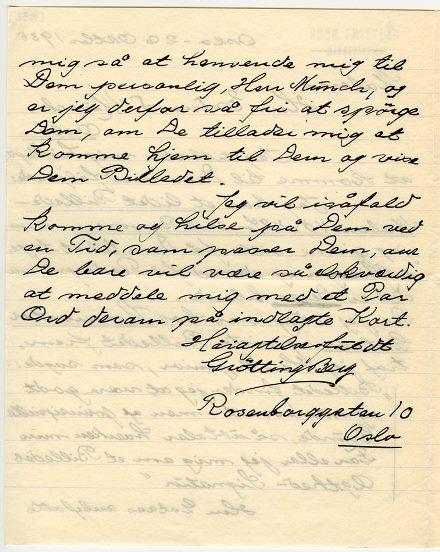 mig så at henvende mig til
Dem personlig, Herr Munch, og
er jeg derfor så fri at spørge
Dem, om De tillader mig at
komme hjem til Dem og vise
Dem Billedet.
Jeg vil isåfald
komme og hilse på Dem ved
en Tid, som passer Dem, om
De bare vil være så elskværdig
at meddele mig med et Par
Ord derom på indlagte Kort.
Høiagtelsesfuldt
Grötting Berg
Rosenborggaten 10
Oslo